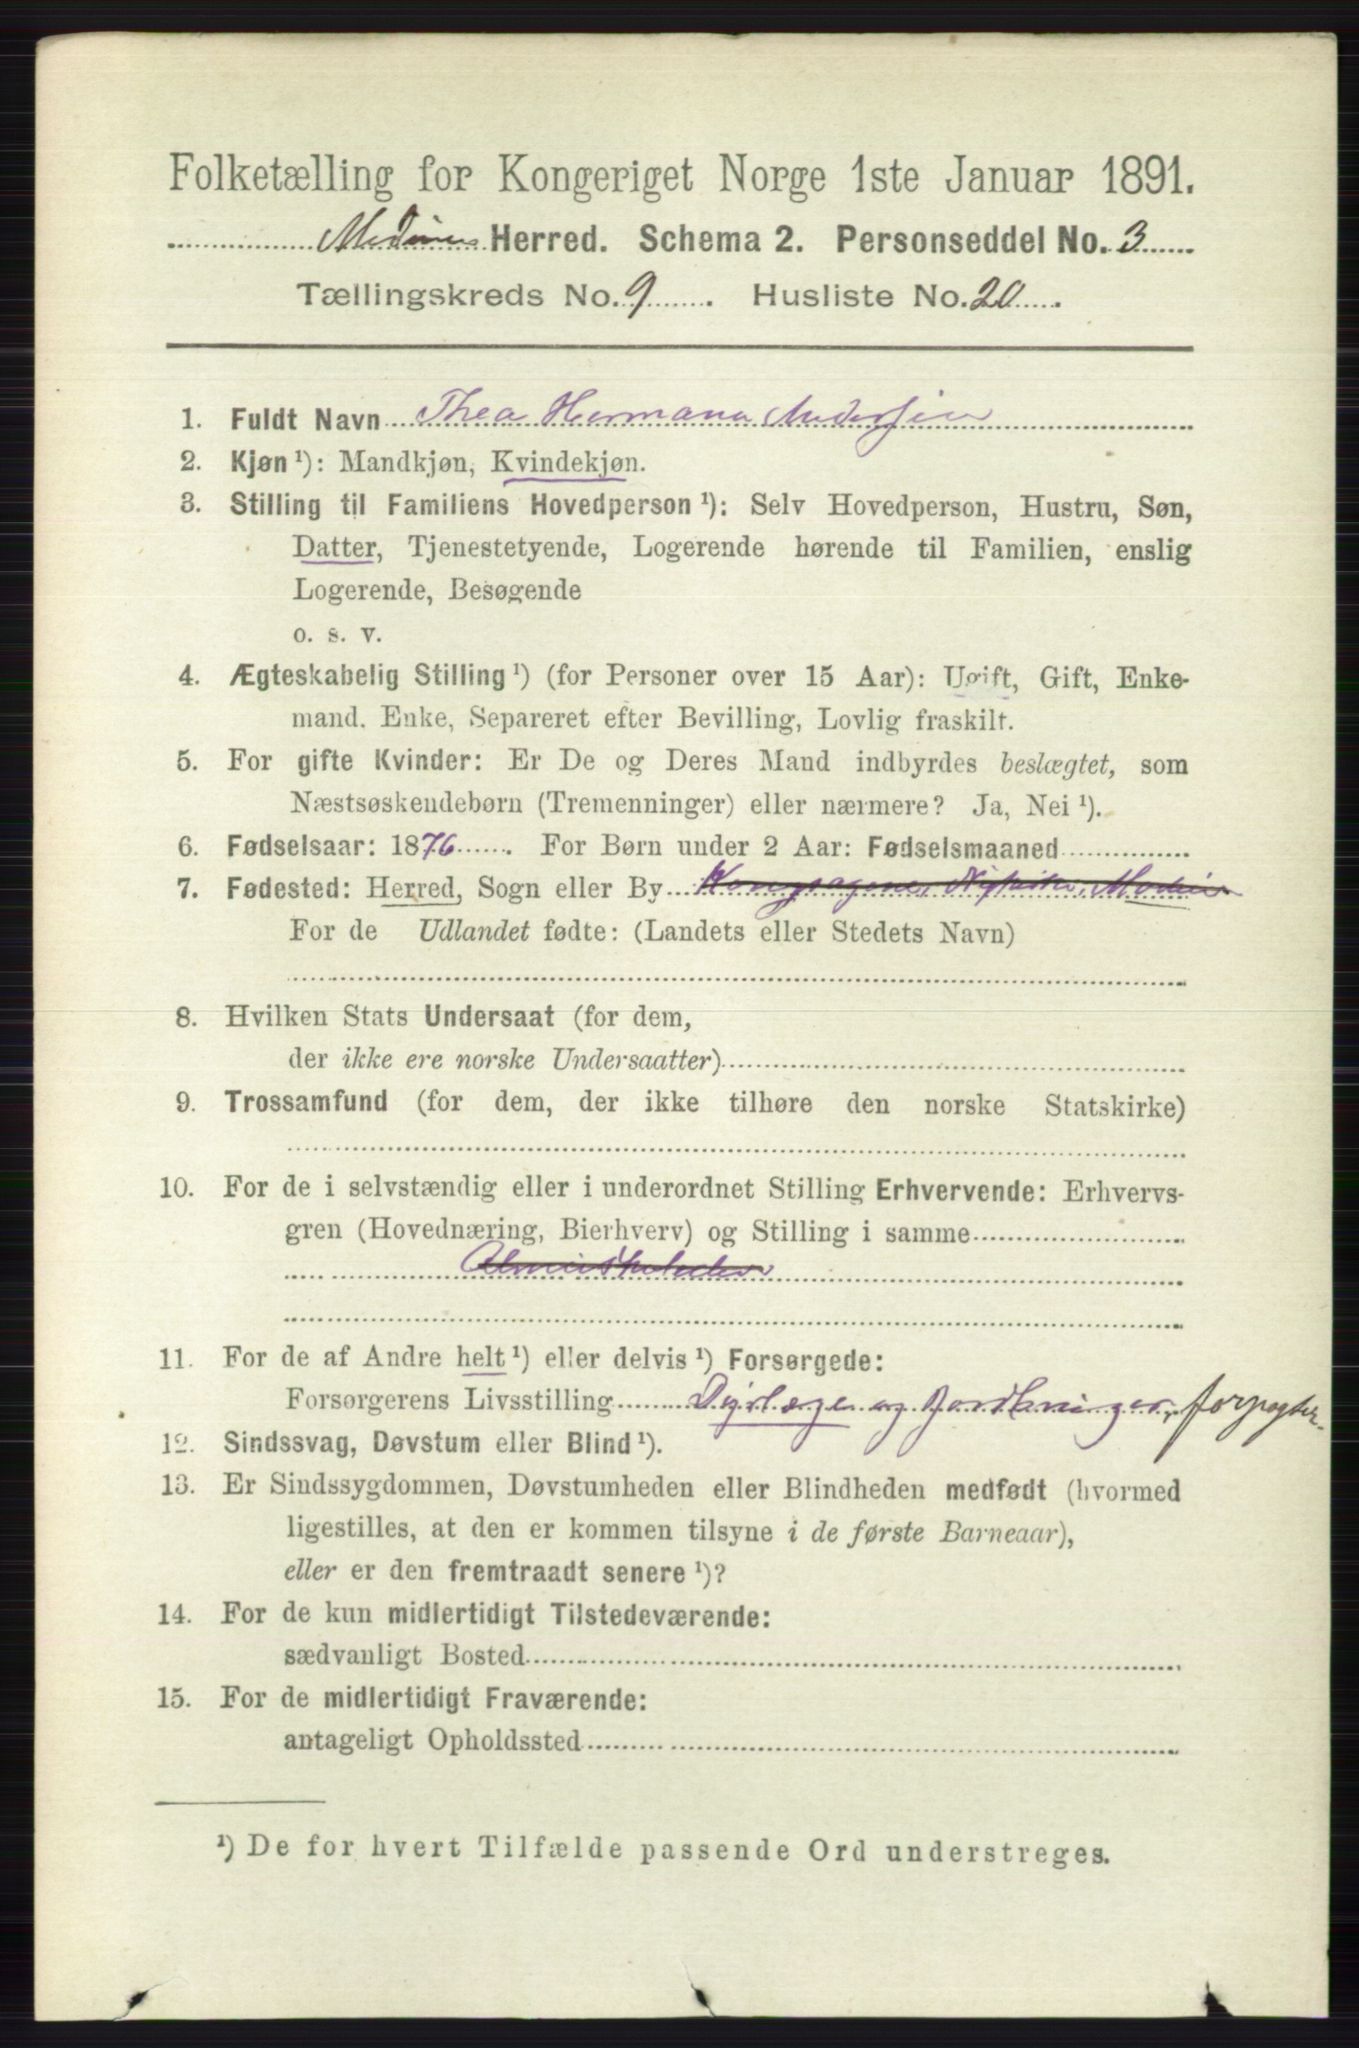 Folketælling for Kongeriget Norge 1ste Januar 1891.
Herred. Schema 2. Personseddel No. 3
Tællingskreds No. 9. Husliste No. 20.
1. Fuldt Navn Thea Hermana Andersen
2. Kjøn ¹): Mandkjøn, Kvindekjøn.
3. Stilling til Familiens Hovedperson ¹): Selv Hovedperson, Hustru, Søn,
Datter, Tjenestetyende, Logerende hørende til Familien, enslig
Logerende, Besøgende
o. s. v.
4. Ægteskabelig Stilling ¹) (for Personer over 15 Aar): Ugift, Gift, Enke-
mand, Enke, Separeret efter Bevilling, Lovlig fraskilt.
5. For gifte Kvinder: Er De og Deres Mand indbyrdes beslægtet, som
Næstsøskendebørn (Tremenninger) eller nærmere? Ja, Nei ¹).
6. Fødselsaar: 1876. For Børn under 2 Aar: Fødselsmaaned
7. Fødested: Herred, Sogn eller By
For de Udlandet fødte: (Landets eller Stedets Navn)
8. Hvilken Stats Undersaat (for dem,
der ikke ere norske Undersaatter)
9. Trossamfund (for dem, der ikke tilhøre den norske Statskirke)
10. For de i selvstændig eller i underordnet Stilling Erhvervende: Erhvervs-
gren (Hovednæring, Bierhverv) og Stilling i samme
11. For de af Andre helt ¹) eller delvis ¹) Forsørgede:
Forsørgerens Livsstilling Dyrlæge og Jordbruger, forpagter
12. Sindssvag, Døvstum eller Blind ¹).
13. Er Sindssygdommen, Døvstumheden eller Blindheden medfødt (hvormed
ligestilles, at den er kommen tilsyne i de første Barneaar),
eller er den fremtraadt senere ¹)?
14. For de kun midlertidigt Tilstedeværende:
sædvanligt Bosted
15. For de midlertidigt Fraværende:
antageligt Opholdssted
¹) De for hvert Tilfælde passende Ord understreges.